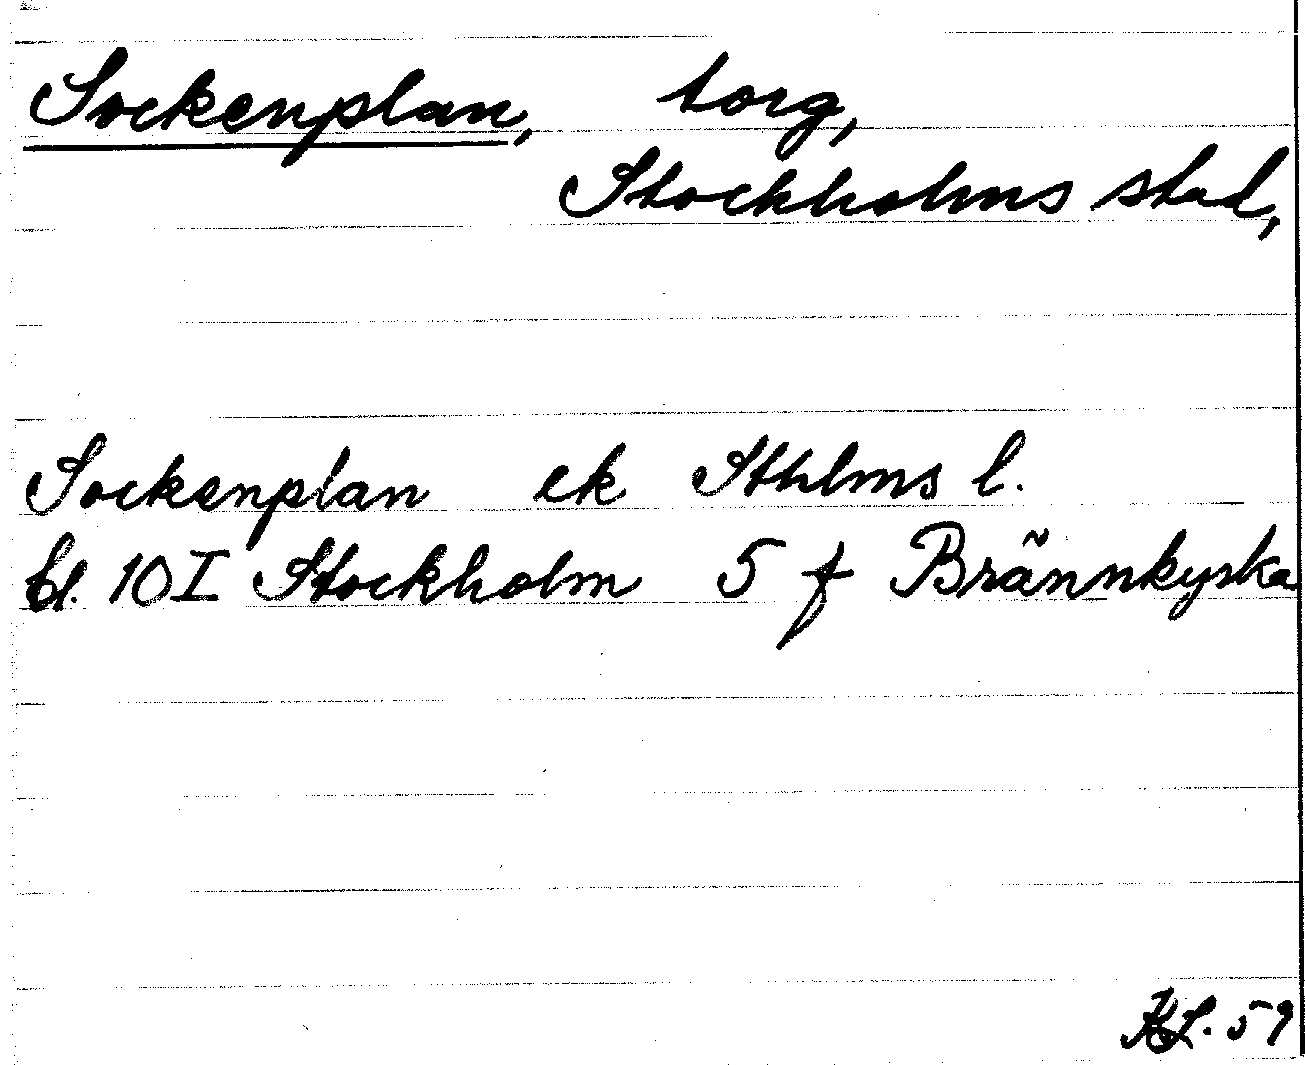 Sockenplan, torg,
Stockholms stad,
Sockenplan ek Sthlms l.
bl. 10 I Stockholm 5 f Brännkyrka
KL. 59